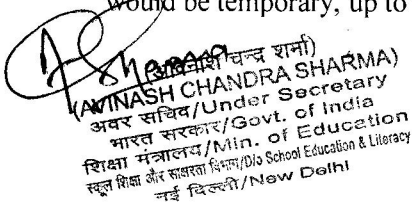 would be temporary, up to
Sharma
(अविनाश चन्द्र शर्मा)
(AVINASH CHANDRA SHARMA)
अवर सचिव/Under Secretary
भारत सरकार/Govt. of India
शिक्षा मंत्रालय/Min. of Education
स्कूल शिक्षा और साक्षरता विभाग/D/o School Education & Literacy
नई दिल्ली/New Delhi